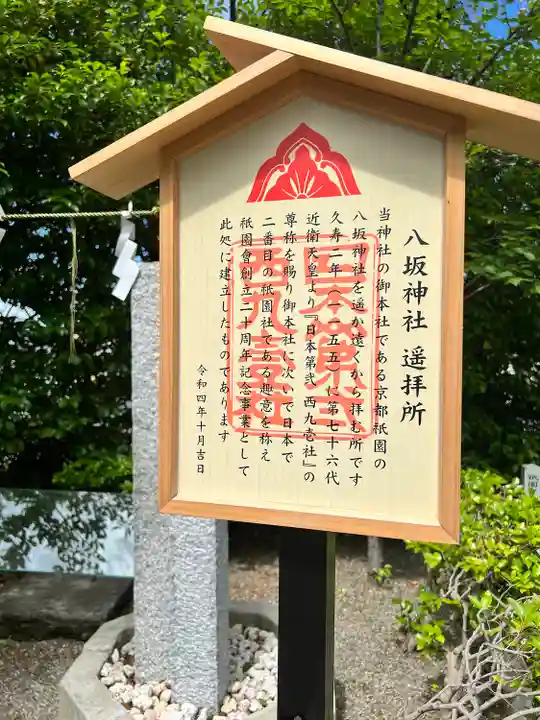 八坂神社 遥拝所
当神社の御本社である京都祇園の
八坂神社を遥か遠くから拝む所です
久寿二年（一一五五）に第七十六代
近衛天皇より『日本第弐 西九壱社』の
尊称を賜り御本社に次いで日本で
二番目の祇園社である趣意を称え
祇園會創立二十周年記念事業として
此処に建立したものであります
令和四年十月吉日